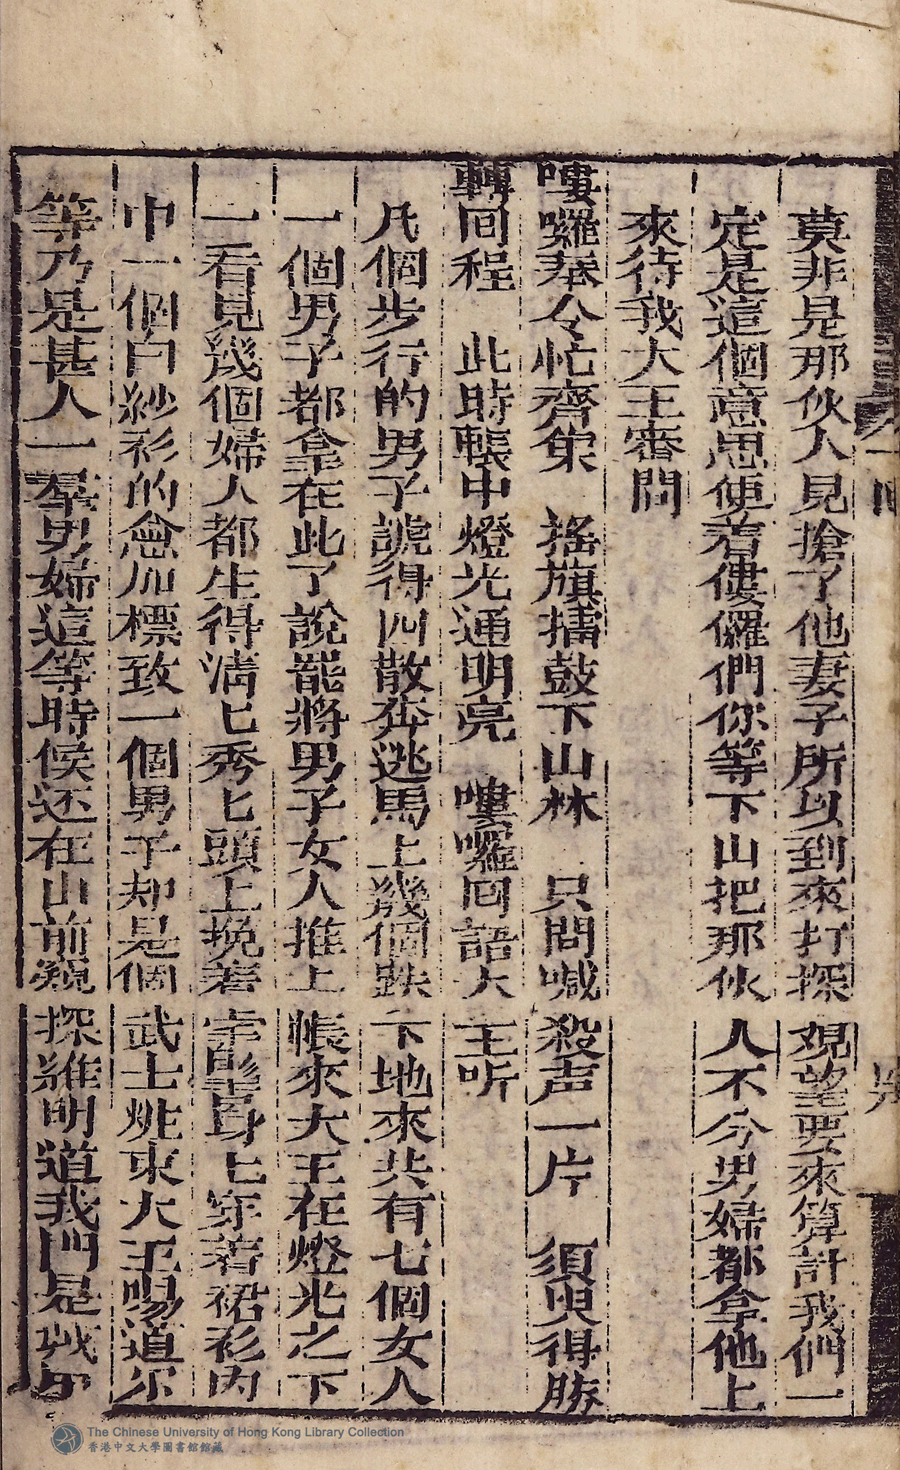 莫非是那伙人見搶了他妻子所以到來打探覌望要來算計我們一
定是這個意思便着僂儸們你等下山把那伙人不分男婦都拿他上
來待我大王審問
嘍囉奉令忙齊集　搖旗擂鼓下山林　只問喊殺声一片　須臾得勝
轉回程　此時轅中燈光通明亮　嘍囉囘語大王听
凡個步行的男子諕得四散奔逃馬上幾個跌下地來共有七個女人
一個男子都拿在此了說罷將男子女人推上帳來大王在燈光之下
一看見幾個婦人都生得淸匕秀匕頭上挽着身匕穿着裙衫内
中一個白紗衫的愈加標致一個男子却是個武士妝束大王喝道尔
等乃是甚人一羣男婦這等時候还在山前窺探維明道我們是
The Chinese University of Hong Kong Library Collection
香港中文大學圖書館館藏